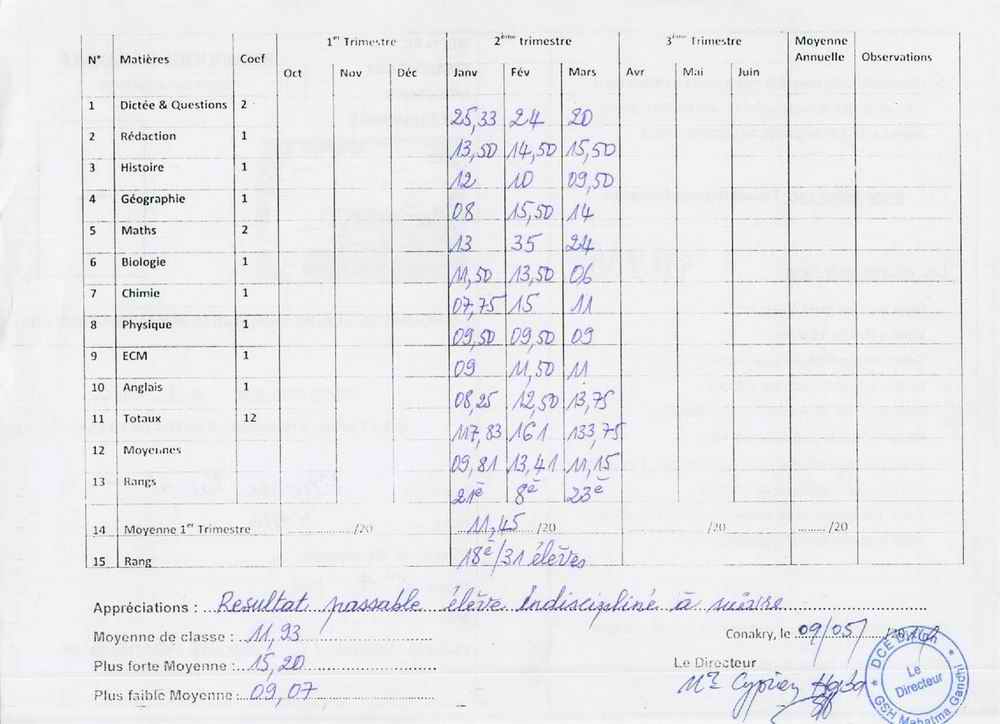 1er Trimestre 2ème trimestre 3ème Trimestre Moyenne Annuelle Observations
N° Matières Coef Oct Nov Déc Janv Fév Mars Avr Mai Juin
1 Dictée & Questions 2 25,33 24 20
2 Rédaction 1 13,50 14,50 15,50
3 Histoire 1 12 10 09,50
4 Géographie 1 08 15,50 14
5 Maths 2 13 35 24
6 Biologie 1 11,50 13,50 06
7 Chimie 1 07,75 15 11
8 Physique 1 09,50 09,50 09
9 ECM 1 09 11,50 11
10 Anglais 1 08,25 12,50 13,75
11 Totaux 12 117,83 161 133,75
12 Moyennes 09,81 13,41 11,15
13 Rangs 21è 8è 23è
14 Moyenne 1er Trimestre ............ /20 ...11,45... /20 /20 ......... /20
15 Rang 18è/31 élèves
Appréciations : Resultat passable élève Indiscipliné à suivre
Moyenne de classe : 11,93
Conakry, le 09/05/
Plus forte Moyenne : 15,20
Le Directeur
Plus faible Moyenne : 09,07
Mr Cyprien
DCE Dixinn
Le Directeur
GSH Mahatma Gandhi